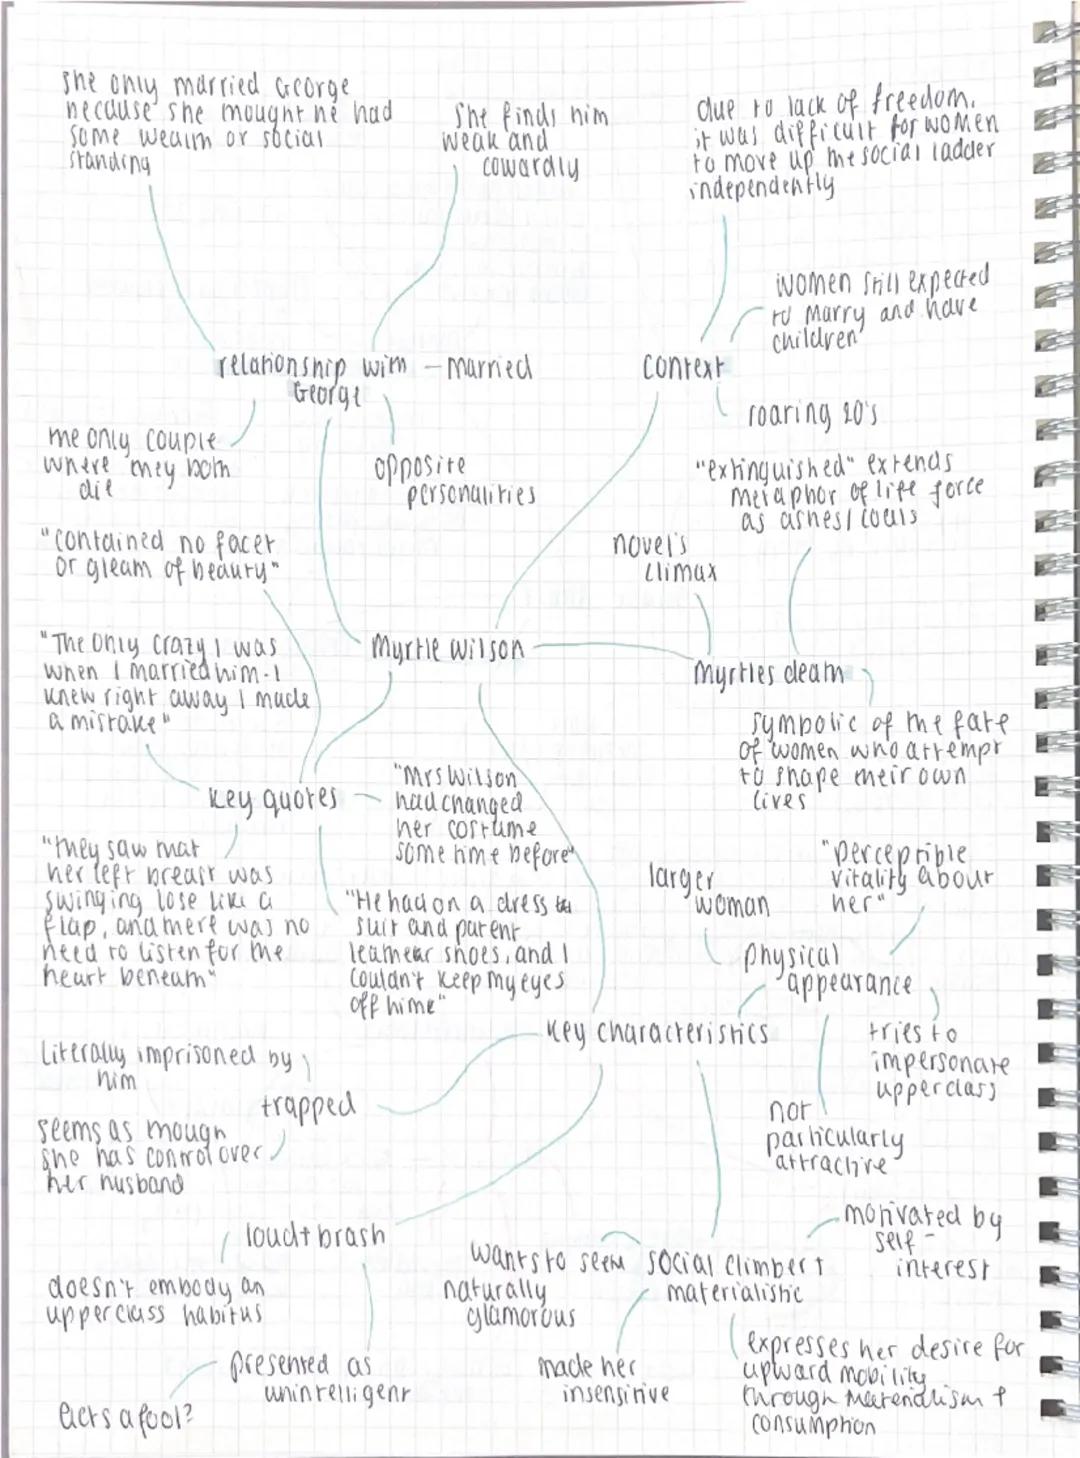 she only married George
because she thought he had
some wealth or social
standing
She finds him
weak and
cowardly
due to lack of freedom,
it was difficult for women
to move up the social ladder
independently
women still expected
to marry and have
children
relationship with - married
George
context
roaring 20's
the only couple
where they both
die
opposite
personalities
"extinguished" extends
metaphor of life force
as ashes/ coals
novel's
climax
"contained no facet
or gleam of beauty"
"The only crazy I was
when I married him - I
knew right away I made
a mistake"
Myrtle Wilson
Myrtles death
symbolic of the fate
of women who attempt
to shape their own
lives
key quotes
"Mrs Wilson
had changed
her costume
some time before"
"they saw that
her left breast was
swinging lose like a
flap, and there was no
need to listen for the
heart beneath"
"He had on a dress
suit and patent
leather shoes, and I
couldn't keep my eyes
off hime"
larger
woman
"perceptible
vitality about
her"
physical
appearance
key characteristics
tries to
impersonate
upperclass
not
particularly
attractive
Literally imprisoned by
him
trapped
seems as though
she has control over
her husband
loud + brash
doesn't embody an
upperclass habitus
presented as
unintelligent
acts a fool?
wants to seem
naturally
glamorous
social climber +
materialistic
motivated by
self-
interest
made her
insensitive
expresses her desire for
upward mobility
through materialism +
consumption